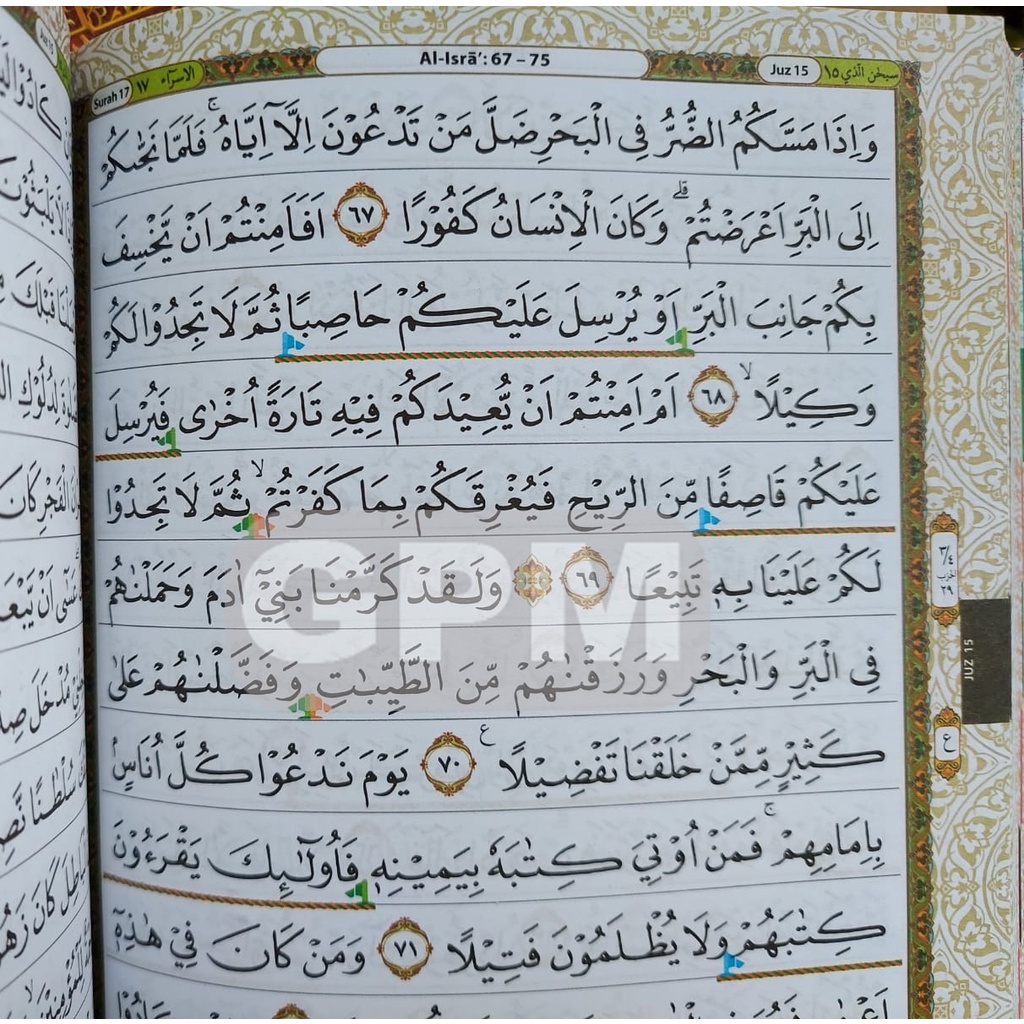 Al-Isrā': 67 – 75
Surah 17
١٧ الاسراۤء
Juz 15
سبحن الّذي ١٥
وَاِذَا مَسَّكُمُ الضُّرُّ فِى الْبَحْرِ ضَلَّ مَنْ تَدْعُوْنَ اِلَّآ اِيَّاهُۚ فَلَمَّا نَجّٰىكُمْ
اِلَى الْبَرِّ اَعْرَضْتُمْۗ وَكَانَ الْاِنْسَانُ كَفُوْرًا ٦٧ اَفَاَمِنْتُمْ اَنْ يَّخْسِفَ
بِكُمْ جَانِبَ الْبَرِّ اَوْ يُرْسِلَ عَلَيْكُمْ حَاصِبًا ثُمَّ لَا تَجِدُوْا لَكُمْ
وَكِيْلًاۙ ٦٨ اَمْ اَمِنْتُمْ اَنْ يُّعِيْدَكُمْ فِيْهِ تَارَةً اُخْرٰى فَيُرْسِلَ
عَلَيْكُمْ قَاصِفًا مِّنَ الرِّيْحِ فَيُغْرِقَكُمْ بِمَا كَفَرْتُمْۙ ثُمَّ لَا تَجِدُوْا
لَكُمْ عَلَيْنَا بِهٖ تَبِيْعًا ٦٩ وَلَقَدْ كَرَّمْنَا بَنِيْٓ اٰدَمَ وَحَمَلْنٰهُمْ
فِى الْبَرِّ وَالْبَحْرِ وَرَزَقْنٰهُمْ مِّنَ الطَّيِّبٰتِ وَفَضَّلْنٰهُمْ عَلٰى
كَثِيْرٍ مِّمَّنْ خَلَقْنَا تَفْضِيْلًا ࣖ ٧٠ يَوْمَ نَدْعُوْا كُلَّ اُنَاسٍۢ
بِاِمَامِهِمْۚ فَمَنْ اُوْتِيَ كِتٰبَهٗ بِيَمِيْنِهٖ فَاُولٰۤىِٕكَ يَقْرَءُوْنَ
كِتٰبَهُمْ وَلَا يُظْلَمُوْنَ فَتِيْلًا ٧١ وَمَنْ كَانَ فِيْ هٰذِهٖٓ
GPM
٣/٤
الحزب
٢٩
JUZ 15
ع